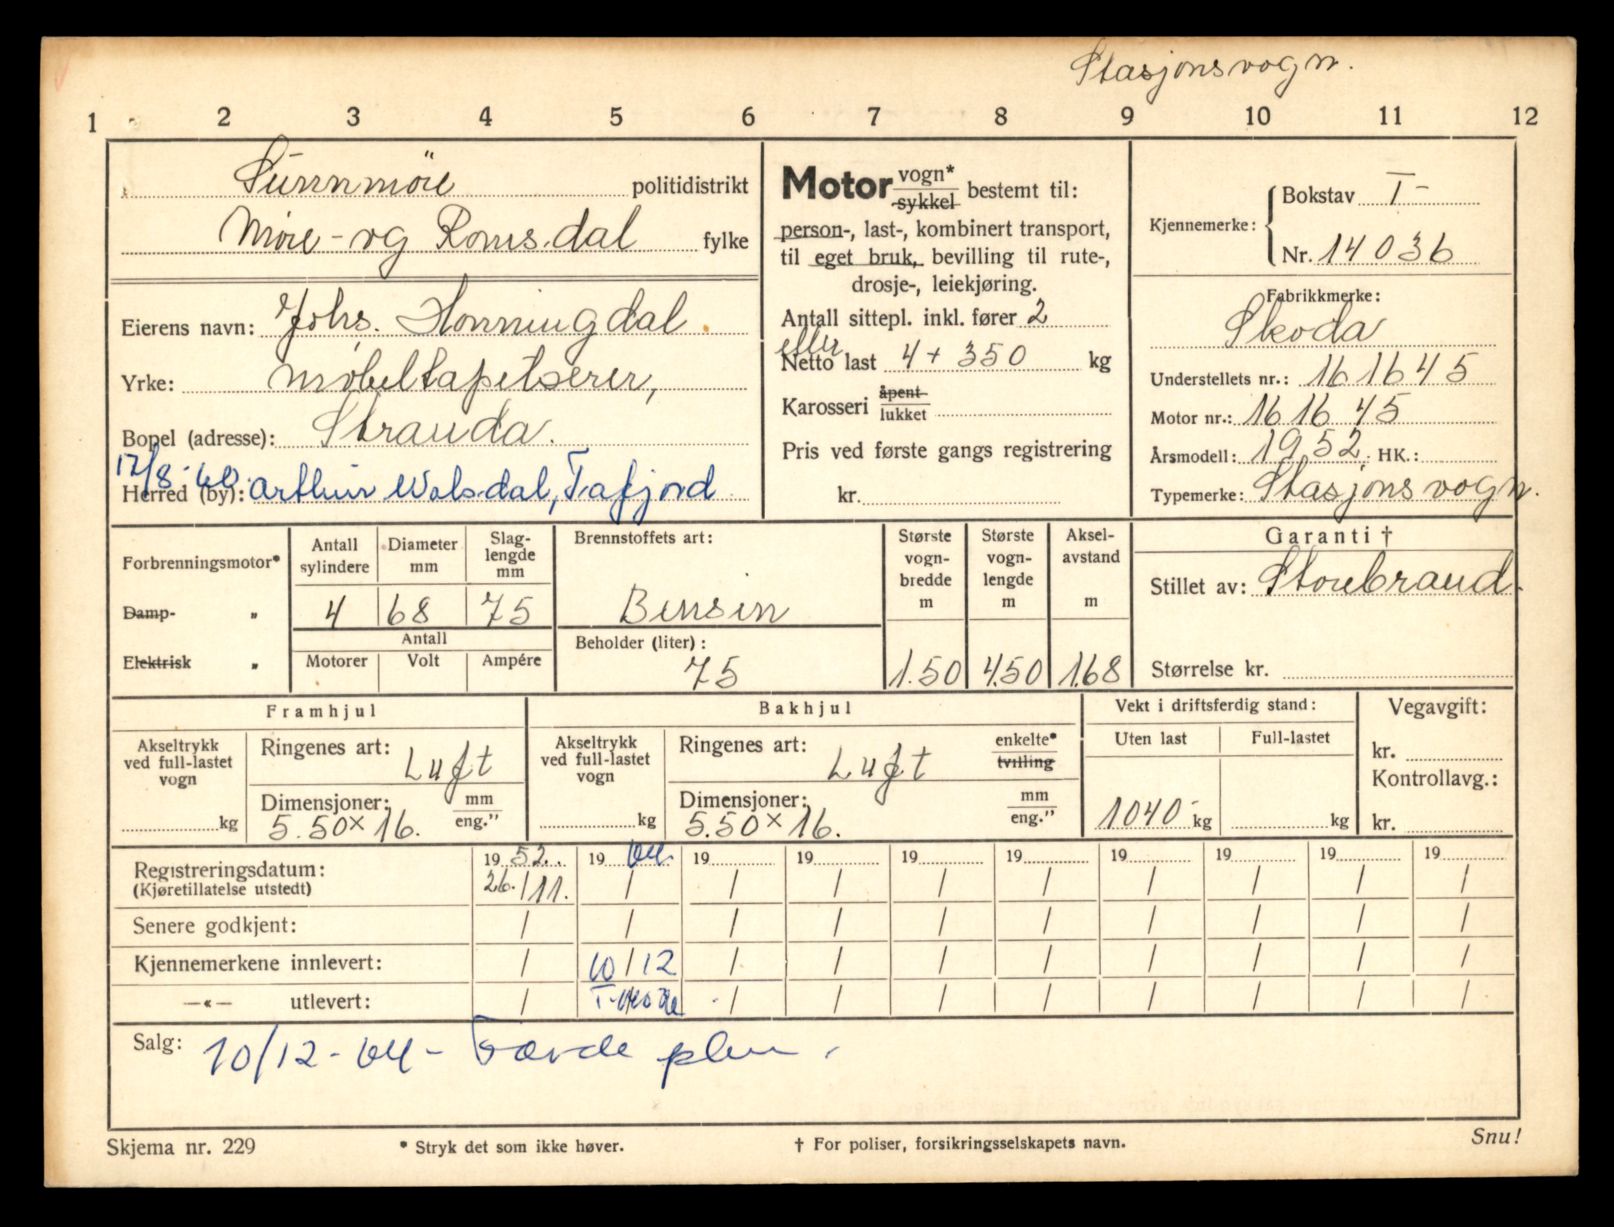 Stasjonsvogn.
1 2 3 4 5 6 7 8 9 10 11 12
Sunnmöre politidistrikt
Møre- og Romsdal fylke
Eierens navn: Johs. Honningdal
Yrke: møbeltapetserer,
Bopel (adresse): Stranda.
12/8-60
Herred (by): Arthur Walsdal, Tafjord
Motor vogn* sykkel bestemt til:
person-, last-, kombinert transport,
til eget bruk, bevilling til rute-,
drosje-, leiekjøring.
Antall sittepl. inkl. fører 2
eller
Netto last 4 + 350 kg
Karosseri åpent lukket
Pris ved første gangs registrering
kr.
Kjennemerke: Bokstav T-
Nr. 14036
Fabrikkmerke:
Skoda
Understellets nr.: 161645
Motor nr.: 161645
Årsmodell: 1952. HK.:
Typemerke: Stasjonsvogn.
Forbrenningsmotor*
Damp- „
Elektrisk „
Antall sylindere Diameter mm Slaglengde mm
4 68 75
Antall
Motorer Volt Ampére
Brennstoffets art:
Bensin
Beholder (liter):
75
Største vognbredde m Største vognlengde m Akselavstand m
1.50 4.50 1.68
Garanti †
Stillet av: Storebrand.
Størrelse kr.
Framhjul
Akseltrykk ved full-lastet vogn
kg
Ringenes art: Luft
Dimensjoner: mm eng."
5.50 x 16.
Bakhjul
Akseltrykk ved full-lastet vogn
kg
Ringenes art: Luft enkelte* tvilling
Dimensjoner: mm eng."
5.50 x 16.
Vekt i driftsferdig stand:
Uten last Full-lastet
1040 kg kg
Vegavgift:
kr.
Kontrollavg.:
kr.
19 52. 19 64. 19 19 19 19 19 19 19 19
Registreringsdatum: 26./11. / / / / / / / / /
(Kjøretillatelse utstedt)
Senere godkjent: / / / / / / / / / /
Kjennemerkene innlevert: / 10/12 / / / / / / / /
—«— utlevert: / / / / / / / / /
Salg: 10/12-64-
Skjema nr. 229 * Stryk det som ikke høver. † For poliser, forsikringsselskapets navn. Snu!